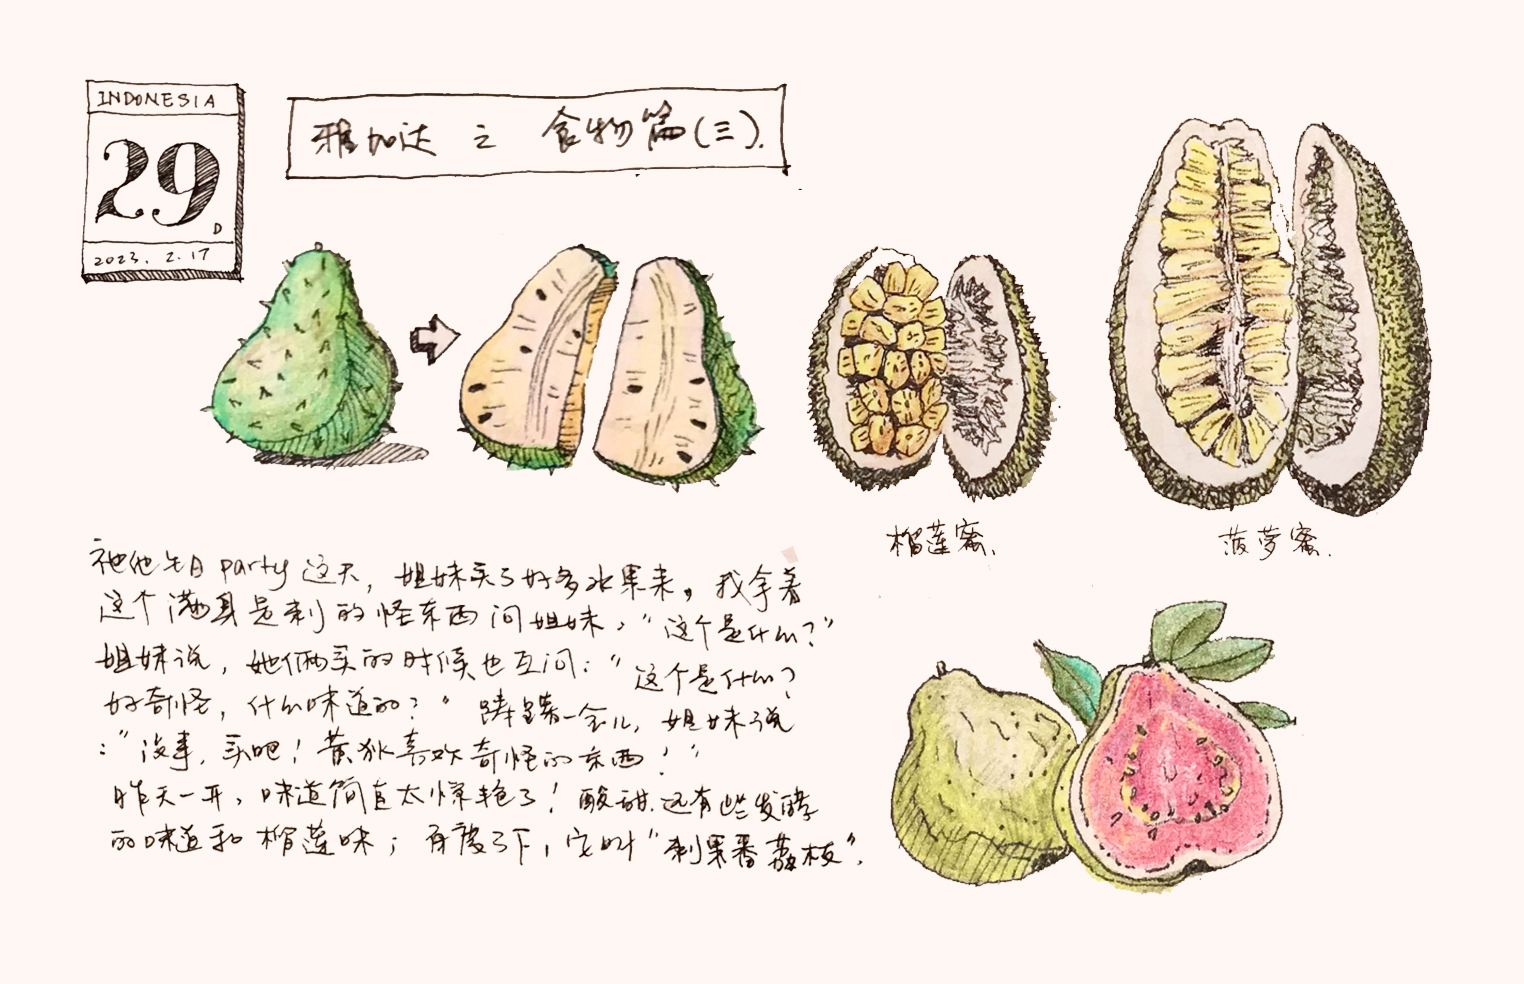 INDONESIA
29
D
2023. 2.17
雅加达 之 食物篇(三).
榴莲蜜.
菠萝蜜.
他生日party这天，姐妹买了好多水果来。我拿着
这个满身是刺的怪东西问姐妹，“这个是什么？”
姐妹说，她俩买的时候也互问：“这个是什么？
好奇怪，什么味道的？” 踌躇一会儿，姐妹说
：“没事，买吧！黄狄喜欢奇怪的东西！”
昨天一开，味道简直太惊艳了！酸甜.还有些发酵
的味道和榴莲味；百度了下，它叫“刺果番荔枝”.